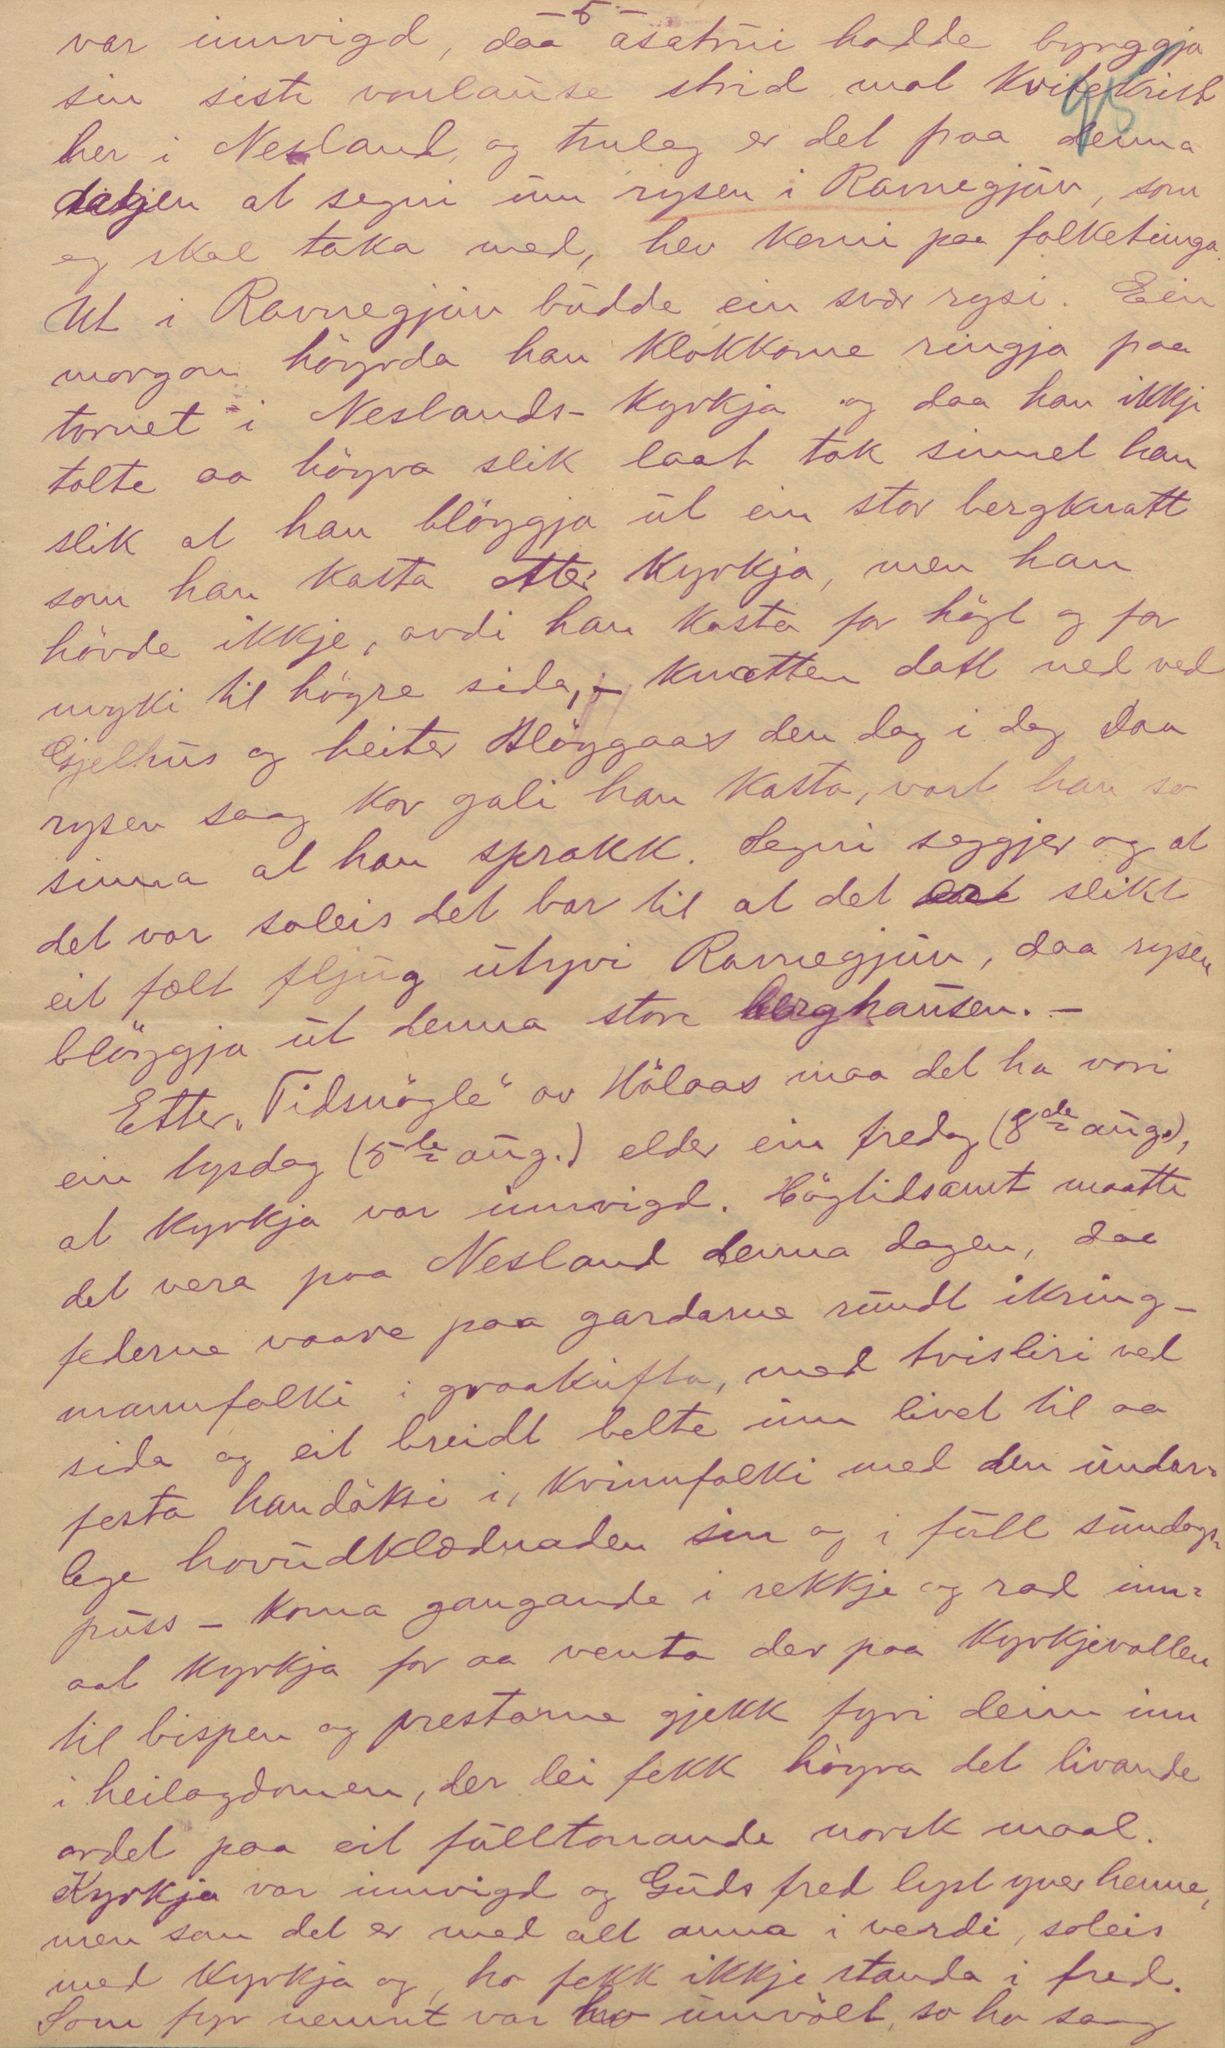 - 5 -
95
var innvigd, daa åsatrui hadde byrggja
sin siste vonlause strid mot Kvitekrist
her i Nesland, og truleg er det paa denna
dagjen at segni um rysen i Ravnegjuv, som
eg skal taka med, hev komi paa folketunga.
Ut i Ravnegjuv budde ein svær rysi. Ein
morgon höyrda han klokkorne ringja paa
tornet i Neslands-kyrkja og daa han ikkji
tolte aa höyra slik laat tok sinnet han
slik at han blöyggja ut ein stor bergknatt
som han kasta etter kyrkja, men han
hövde ikkje, avdi han kasta for högt og for
myki til högre sida, knatten datt ned ved
Gjelhus og heiter Blöyggaas den dag i dag. Daa
rysen saag kor gali han kasta, vart han so
sinna at han sprakk. Segni seggjer og at
det var soleis det bar til at det slikt
eit fælt fljug utyvi Ravnegjuv, daa rysen
blöyggja ut denna store berghausen. -
Etter „Tidsnögle" av Hölaas maa det ha vori
ein tysdag (5te aug.) elder ein fredag (8de aug.),
at kyrkja var innvigd. Högtidsamt maatte
det vera paa Nesland denna dagen, daa
federne vaare paa gardarne rundt ikring -
mannfolki i graakufta, med tvisliri ved
sida og eit breidt belte um livet til aa
festa handöksi i, kvinnfolki med den undar-
lege hovudklædnaden sin og i full sundags-
puss - koma gangande i rekkje og rad inn-
aat kyrkja for aa venta der paa kyrkjevollen
til bispen og prestarne gjekk fyri deim inn
i heilagdomen, der dei fekk höyra det livande
ordet paa eit fulltonande norsk maal.
Kyrkja var innvigd og Guds fred lyst yver henne,
men som det er med alt anna i verdi, soleis
med kyrkja og, ho fekk ikkje standa i fred.
Som fyr nemnt var ho umvölt, so ho saag